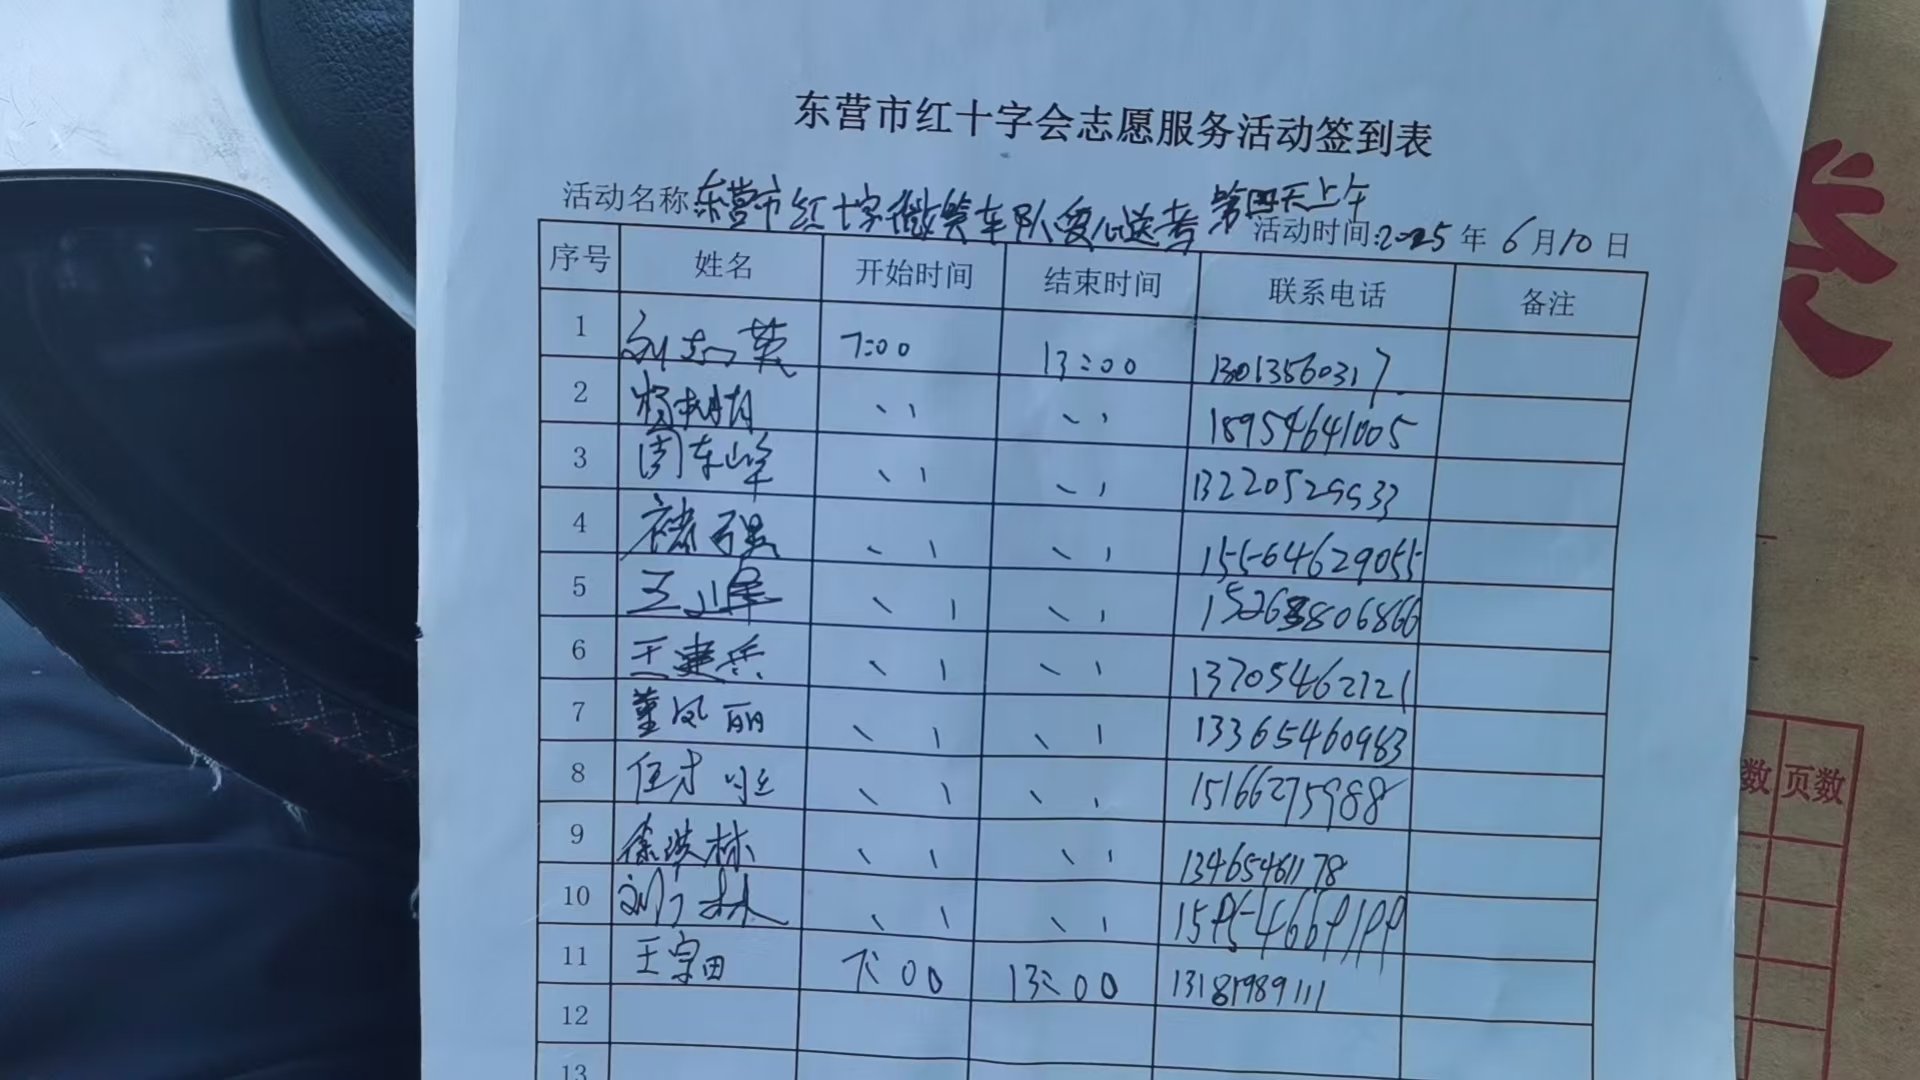 东营市红十字会志愿服务活动签到表
活动名称 东营市红十字微笑车队爱心送考 第四天上午
活动时间: 2025 年 6 月 10 日
序号 姓名 开始时间 结束时间 联系电话 备注
1 刘志英 7:00 13:00 13013560317
2 杨 、、 、、 18954641005
3 周东峰 、、 、、 13220529533
4 褚强 、、 、、 15564629055
5 王峰 、、 、、 15263806866
6 王建兵 、、 、、 13705462121
7 董凤丽 、、 、、 13365460983
8 任才 、、 、、 15166275988
9 徐洪林 、、 、、 13465461178
10 刘广林 、、 、、
11 王宗田 7:00 13:00 13181989111
12
13
数 页数